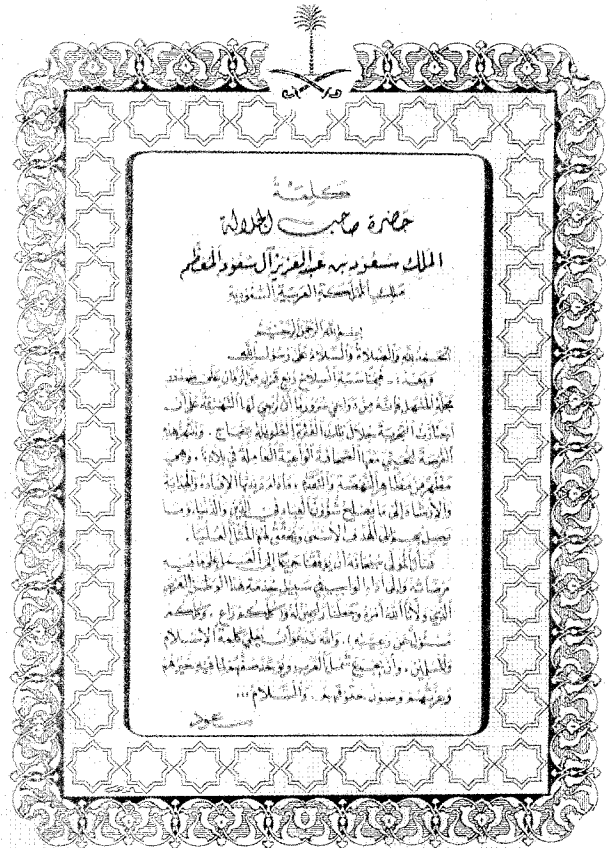 كلمة
حضرة صاحب الجلالة
الملك سعود بن عبد العزيز آل سعود المعظم
ملك المملكة العربية السعودية
بسم الله الرحمن الرحيم
الحمد لله والصلاة والسلام على رسول الله
وبعد: فبمناسبة انسلاخ ربع قرن من الزمان على
مجلة المنهل فإنه من دواعي سرورنا أن نزجي لها التهنئة على أن
اجتازت التجربة خلال تلك الفترة الطويلة بنجاح. وننتهز هذه
الفرصة لنحيي معها الصحافة الواعية العاملة في بلادنا، وهي
مظهر من مظاهر النهضة والتقدم، الإفادة والهداية
والإرشاد إلى ما يصلح شؤون العباد في الدين والدنيا، وما
يصل بهم إلى الهدف الأسمى ويحقق لهم المثل العليا.
نسأل المولى سبحانه أن يوفقنا جميعا إلى العمل لما فيه
مرضاته وإلى أداء الواجب في سبيل خدمة هذا الوطن العزيز
الذي ولانا الله أمره وجعلنا راعين له (وكلكم راع، وكلكم
مسئول عن رعيته). والله ندعو أن يعلي كلمة الإسلام
والمسلمين، وأن يجمع شمل العرب ويوحد صفهم لما فيه خيرهم
وعزتهم وصون حقوقهم. والسلام...
سعود